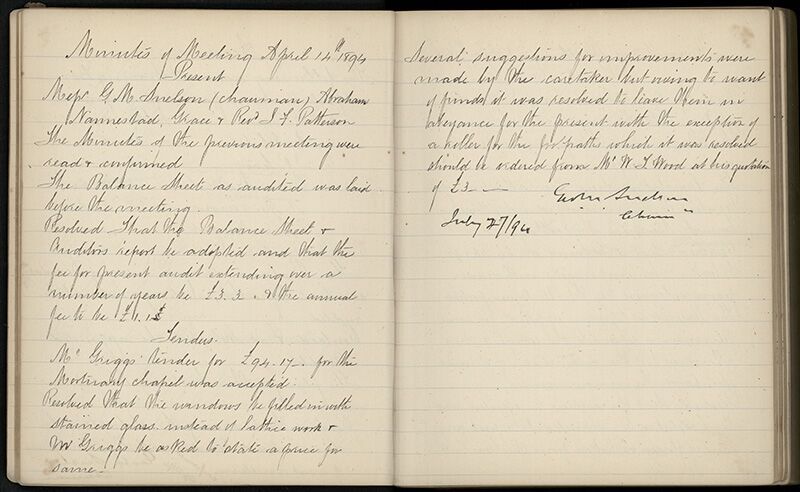 Minutes of Meeting April 14th 1894
Present
Messrs G. M. Snelson (chairman) Abraham
Nannestad, Grace & Revd I. F. Patterson
The Minutes of the previous meeting were
read & confirmed
The Balance Sheet as audited was laid
before the meeting.
Resolved That the Balance Sheet &
Auditors report be adopted and that the
fee for present audit extending over a
number of years be £3.3. & the annual
fee to be £1.1
Tenders.
Mr Griggs' tender for £94.17-. for the
Mortuary chapel was accepted.
Resolved that the windows be filled in with
stained glass instead of lattice work &
Mr Griggs be asked to state a price for
same-
Several suggestions for improvements were
made by the caretaker but owing to want
of funds it was resolved to leave them in
abeyance for the present with the exception of
a roller for the footpaths which it was resolved
should be ordered from Mr W. T. Wood at his quotation
of £3 -
Snelson
Chairman
July 27/94